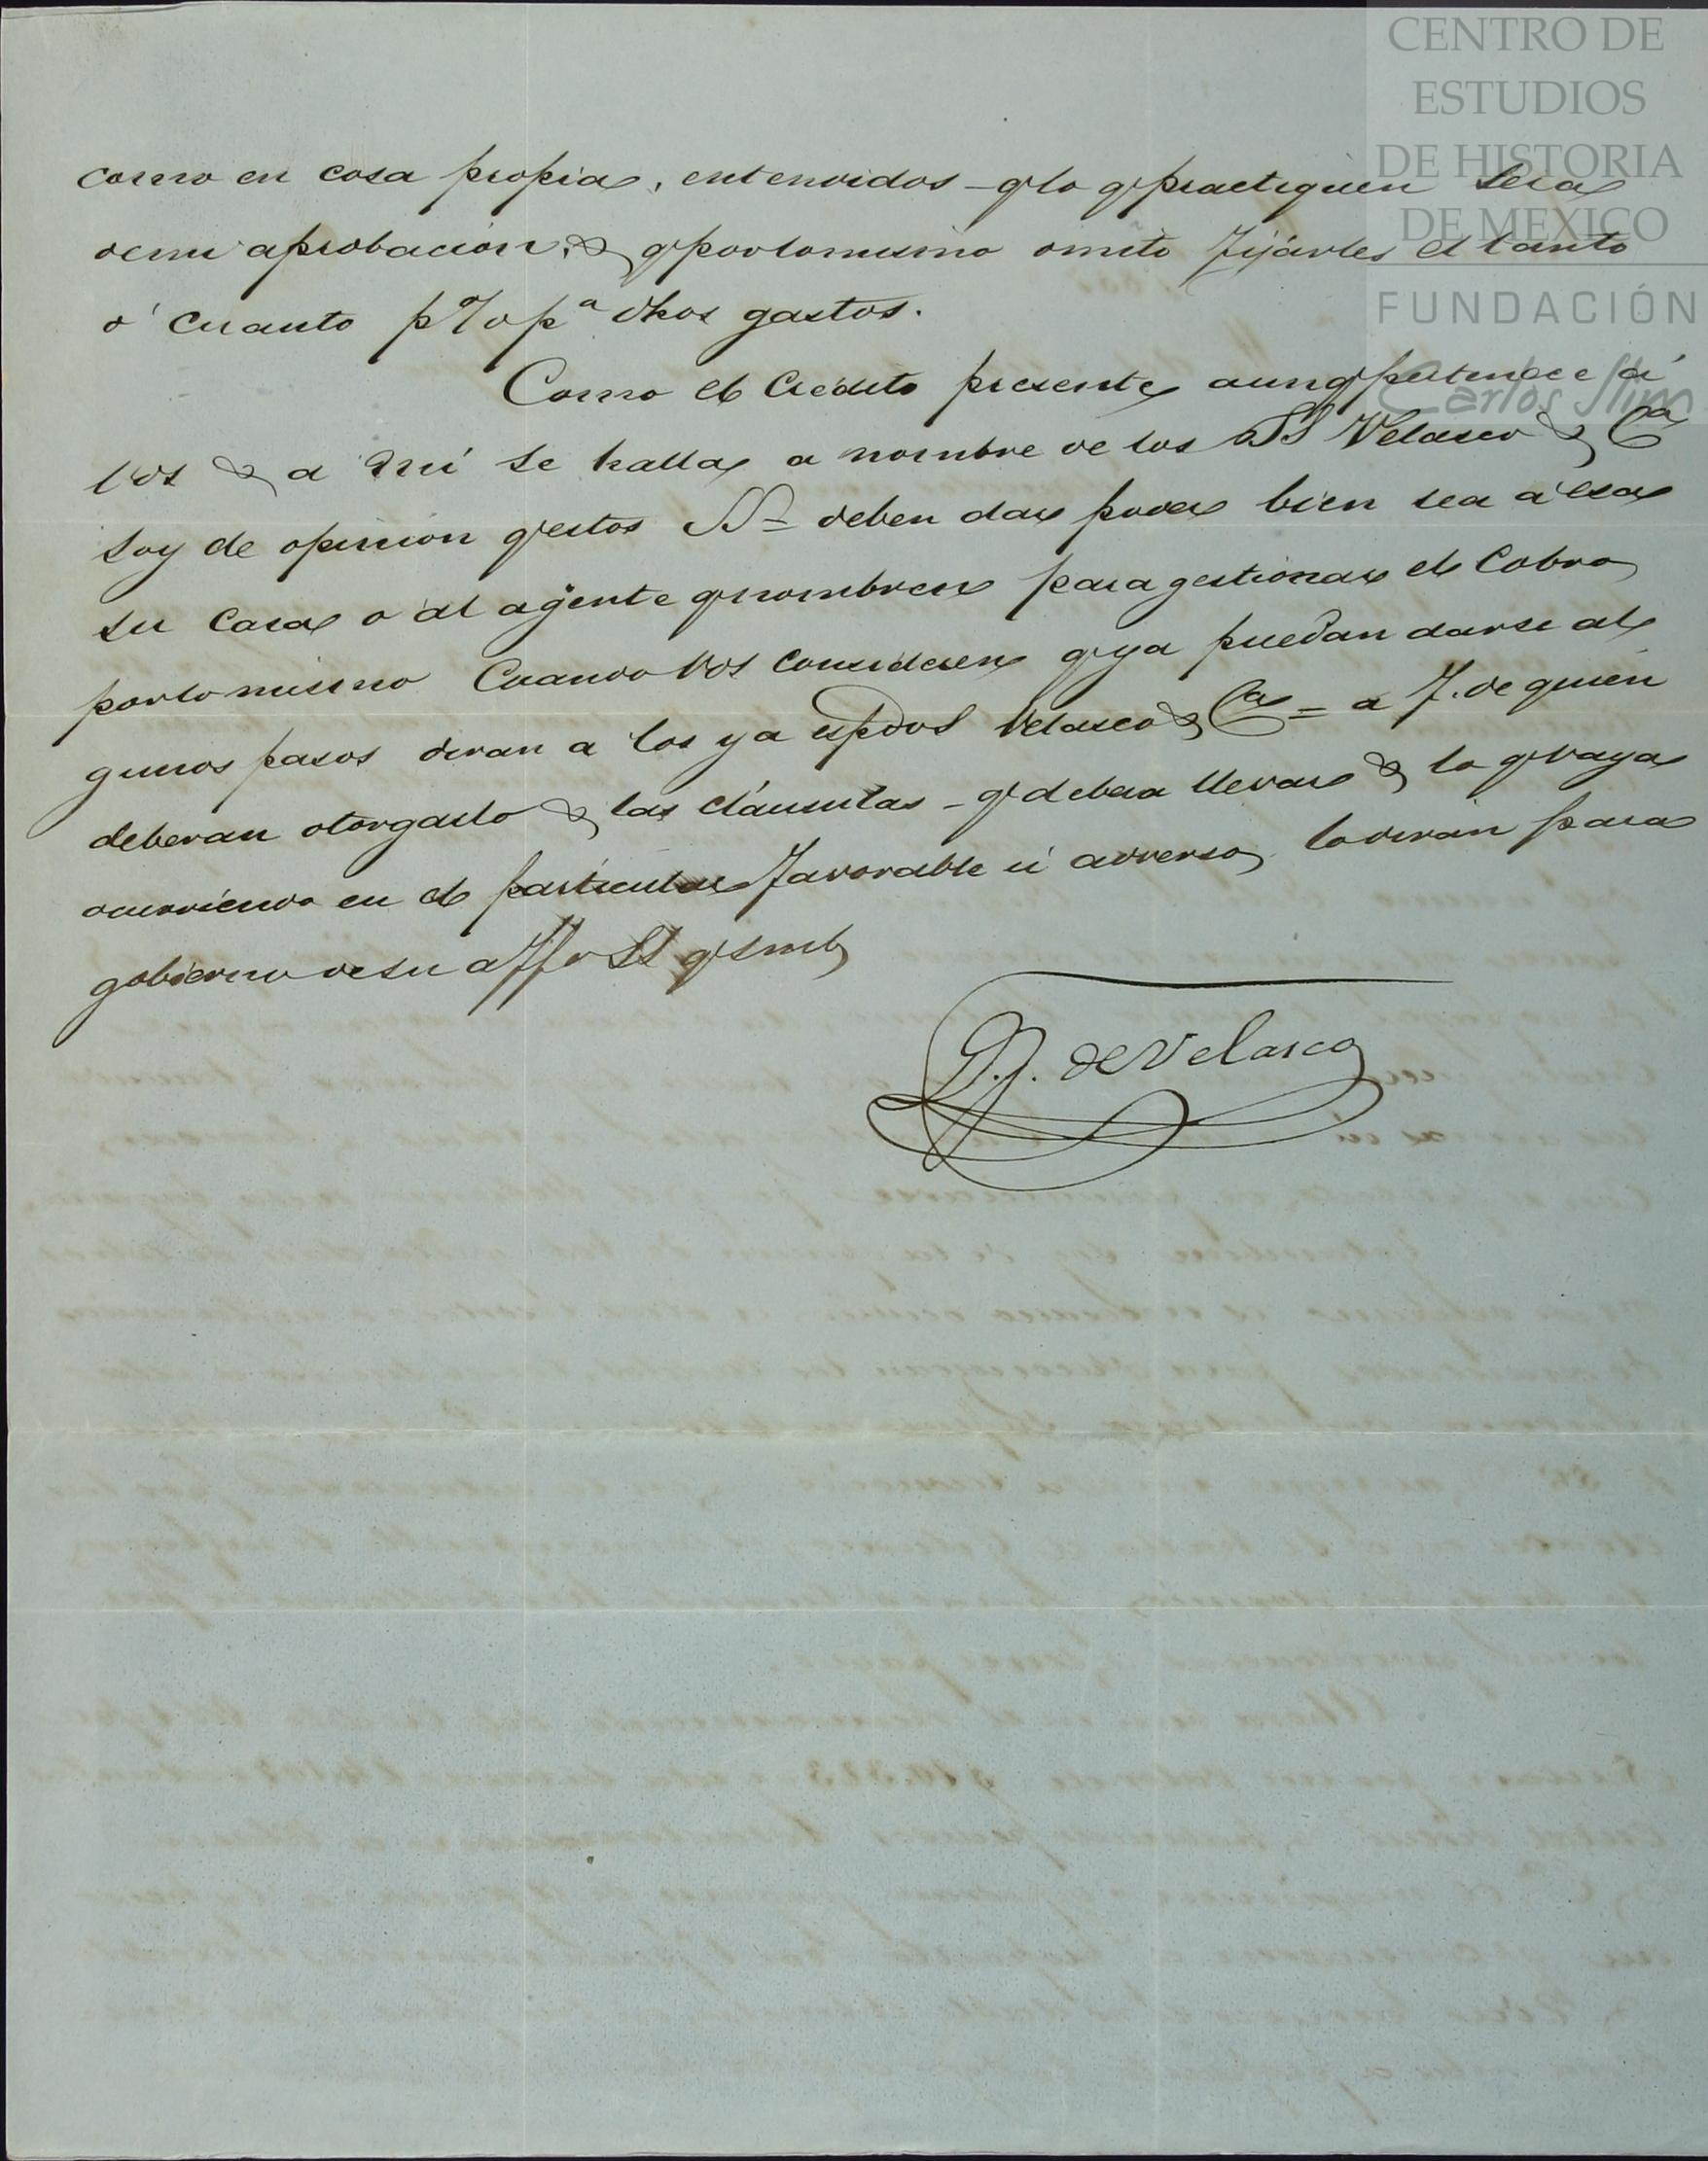 CENTRO DE
ESTUDIOS
DE HISTORIA
DE MEXICO
FUNDACIÓN
Carlos Slim
como en cosa propia, entendidos q lo q practiquen sera
de mi aprobacion, & q por lo mismo omito fijárles el tanto
ó cuanto p% pª dhos gastos.
Como el Credito presente aunq pertenece á
Vds & a mí se halla a nombre de los SS Velasco & Cª
soy de opinion q estos SS deben dar poder bien sea á esa
su casa o al agente q nombren para gestionar el Cobro
por lo mismo Cuando Vds consideren q ya puedan darse al
gunos pasos diran a los ya espdos Velasco & Cª = a f. de quien
deberan otorgarlo & las cláusulas q debera llevar & lo q vaya
ocurriendo en el particular favorable ú adverso lo dirán para
gobierno de su affo SS q s m b
P. J. de Velasco